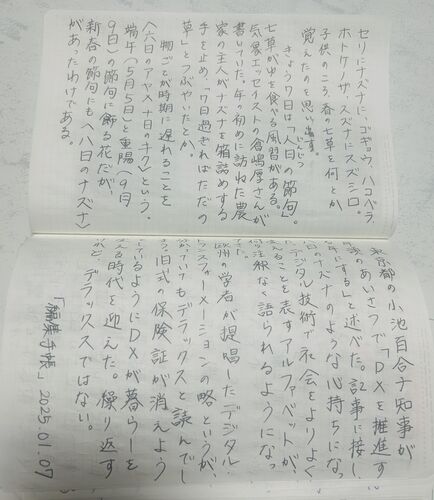 セリにナズナに、ゴギョウ、ハコベラ、
ホトケノザ、スズナにスズシロ。
子供のころ、春の七草を何とか
覚えたのを思い出す。
きょう7日は「人日の節句」。
じんじつ
七草がゆを食べる風習がある。
気象エッセイストの倉嶋厚さんが
書いていた。年の初めに訪れた農
家の主人がナズナを箱詰めする
手を止め、「7日過ぎればただの
草」とつぶやいたとか。
物ごとが時期に遅れることを
〈六日のアヤメ十日のキク〉という。
端午(5月5日)と重陽(9月
9日)の節句に飾る花だが、
新春の節句にも〈八日のナズナ〉
があったわけである。
京都の小池百合子知事が
のあいさつで「DXを推進す
年にする」と述べた。記事に接し、
日のナズナのような心持ちになっ
デジタル技術で社会をよりよく
えることを表すアルファベットが、
注釈なく語られるようになっ
欧州の学者が提唱したデジタル・
ンスフォーメーションの略というが、
ていてもデラックスと読んでし
旧式の保険証が消えよう
ているようにDXが暮らしを
える時代を迎えた。繰り返す
が、デラックスではない。
「編集手帳」2025.01.07